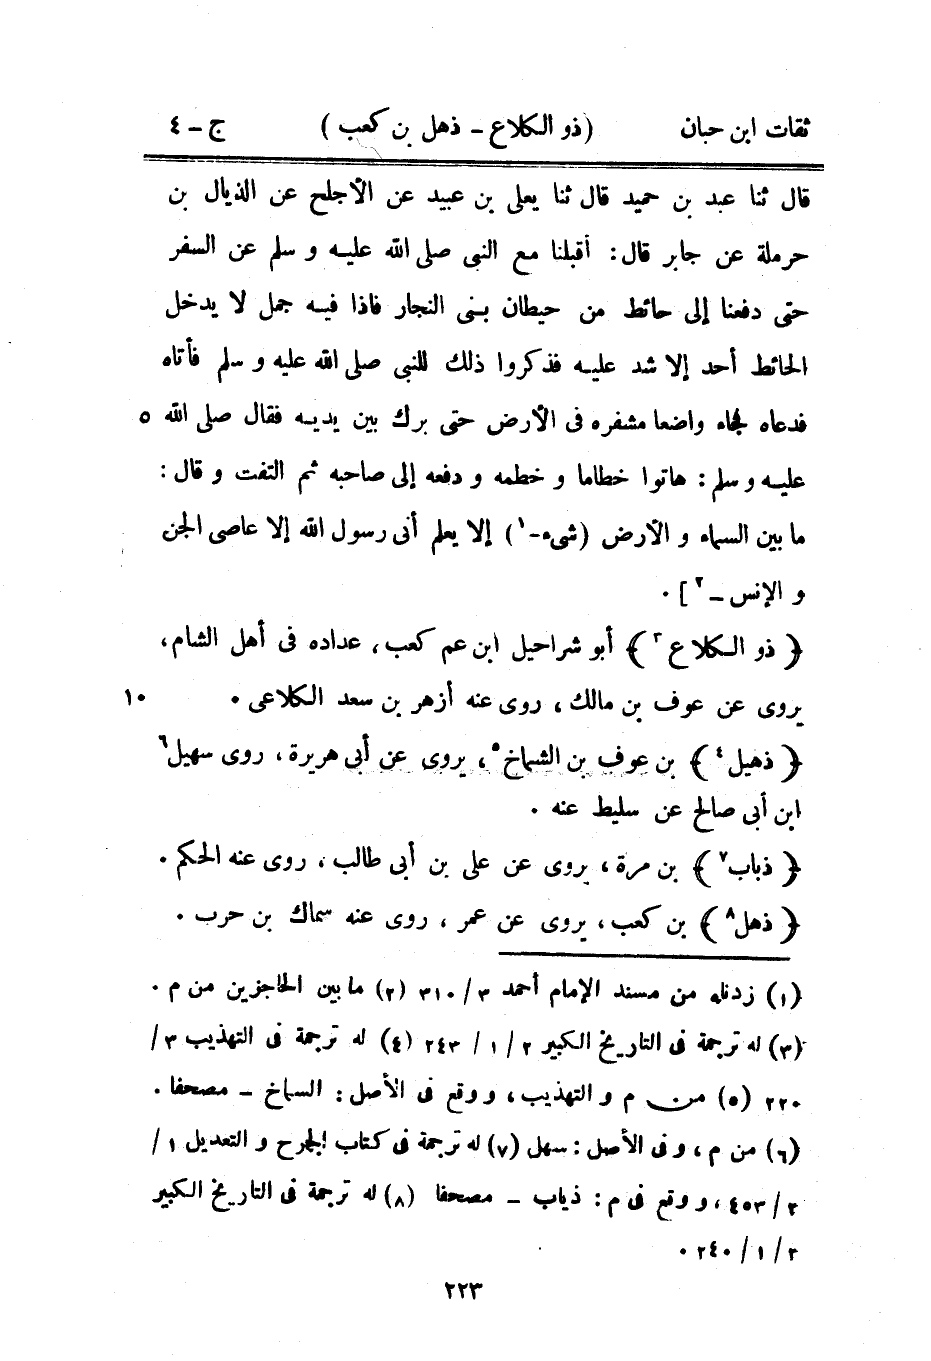 ثقات ابن حبان (ذو الكلاع - ذهل بن كعب) ج - ٤
قال ثنا عبد بن حميد قال ثنا يعلى بن عبيد عن الأجلح عن الذيال بن
حرملة عن جابر قال: أقبلنا مع النبى صلى الله عليه و سلم عن السفر
حتى دفعنا إلى حائط من حيطان بنى النجار فاذا فيه جمل لا يدخل
الحائط أحد إلا شد عليه فذكروا ذلك للنبى صلى الله عليه و سلم فأتاه
فدعاه فجاء واضعا مشفره فى الأرض حتى برك بين يديه فقال صلى الله ٥
عليه و سلم: هاتوا خطاما و خطمه و دفعه إلى صاحبه ثم التفت و قال:
ما بين السماء و الأرض (شىء-١) إلا يعلم أنى رسول الله إلا عاصى الجن
و الإنس - ٢] .
﴿ ذو الكلاع ٣ ﴾ أبو شراحيل ابن عم كعب، عداده فى أهل الشام،
يروى عن عوف بن مالك، روى عنه أزهر بن سعد الكلاعى . ١٠
﴿ ذهيل ٤ ﴾ بن عوف بن الشماخ٥، يروى عن أبى هريرة، روى سهيل٦
ابن أبى صالح عن سليط عنه .
﴿ ذباب٧ ﴾ بن مرة، يروى عن على بن أبى طالب، روى عنه الحكم .
﴿ ذهل٨ ﴾ بن كعب، يروى عن عمر، روى عنه سماك بن حرب .
(١) زدناه من مسند الإمام أحمد ٣/ ٣١٠ (٢) ما بين الحاجزين من م .
(٣) له ترجمة فى التاريخ الكبير ٢/ ١/ ٢٤٣ (٤) له ترجمة فى التهذيب ٣/
٢٢٠ (٥) من م و التهذيب، و وقع فى الأصل: السماخ - مصحفا .
(٦) من م، و فى الأصل: سهل (٧) له ترجمة فى كتاب الجرح و التعديل ١/
٢/ ٤٥٣، و وقع فى م: ذياب - مصحفا (٨) له ترجمة فى التاريخ الكبير
٢/ ١/ ٢٤٠ .
٢٢٣